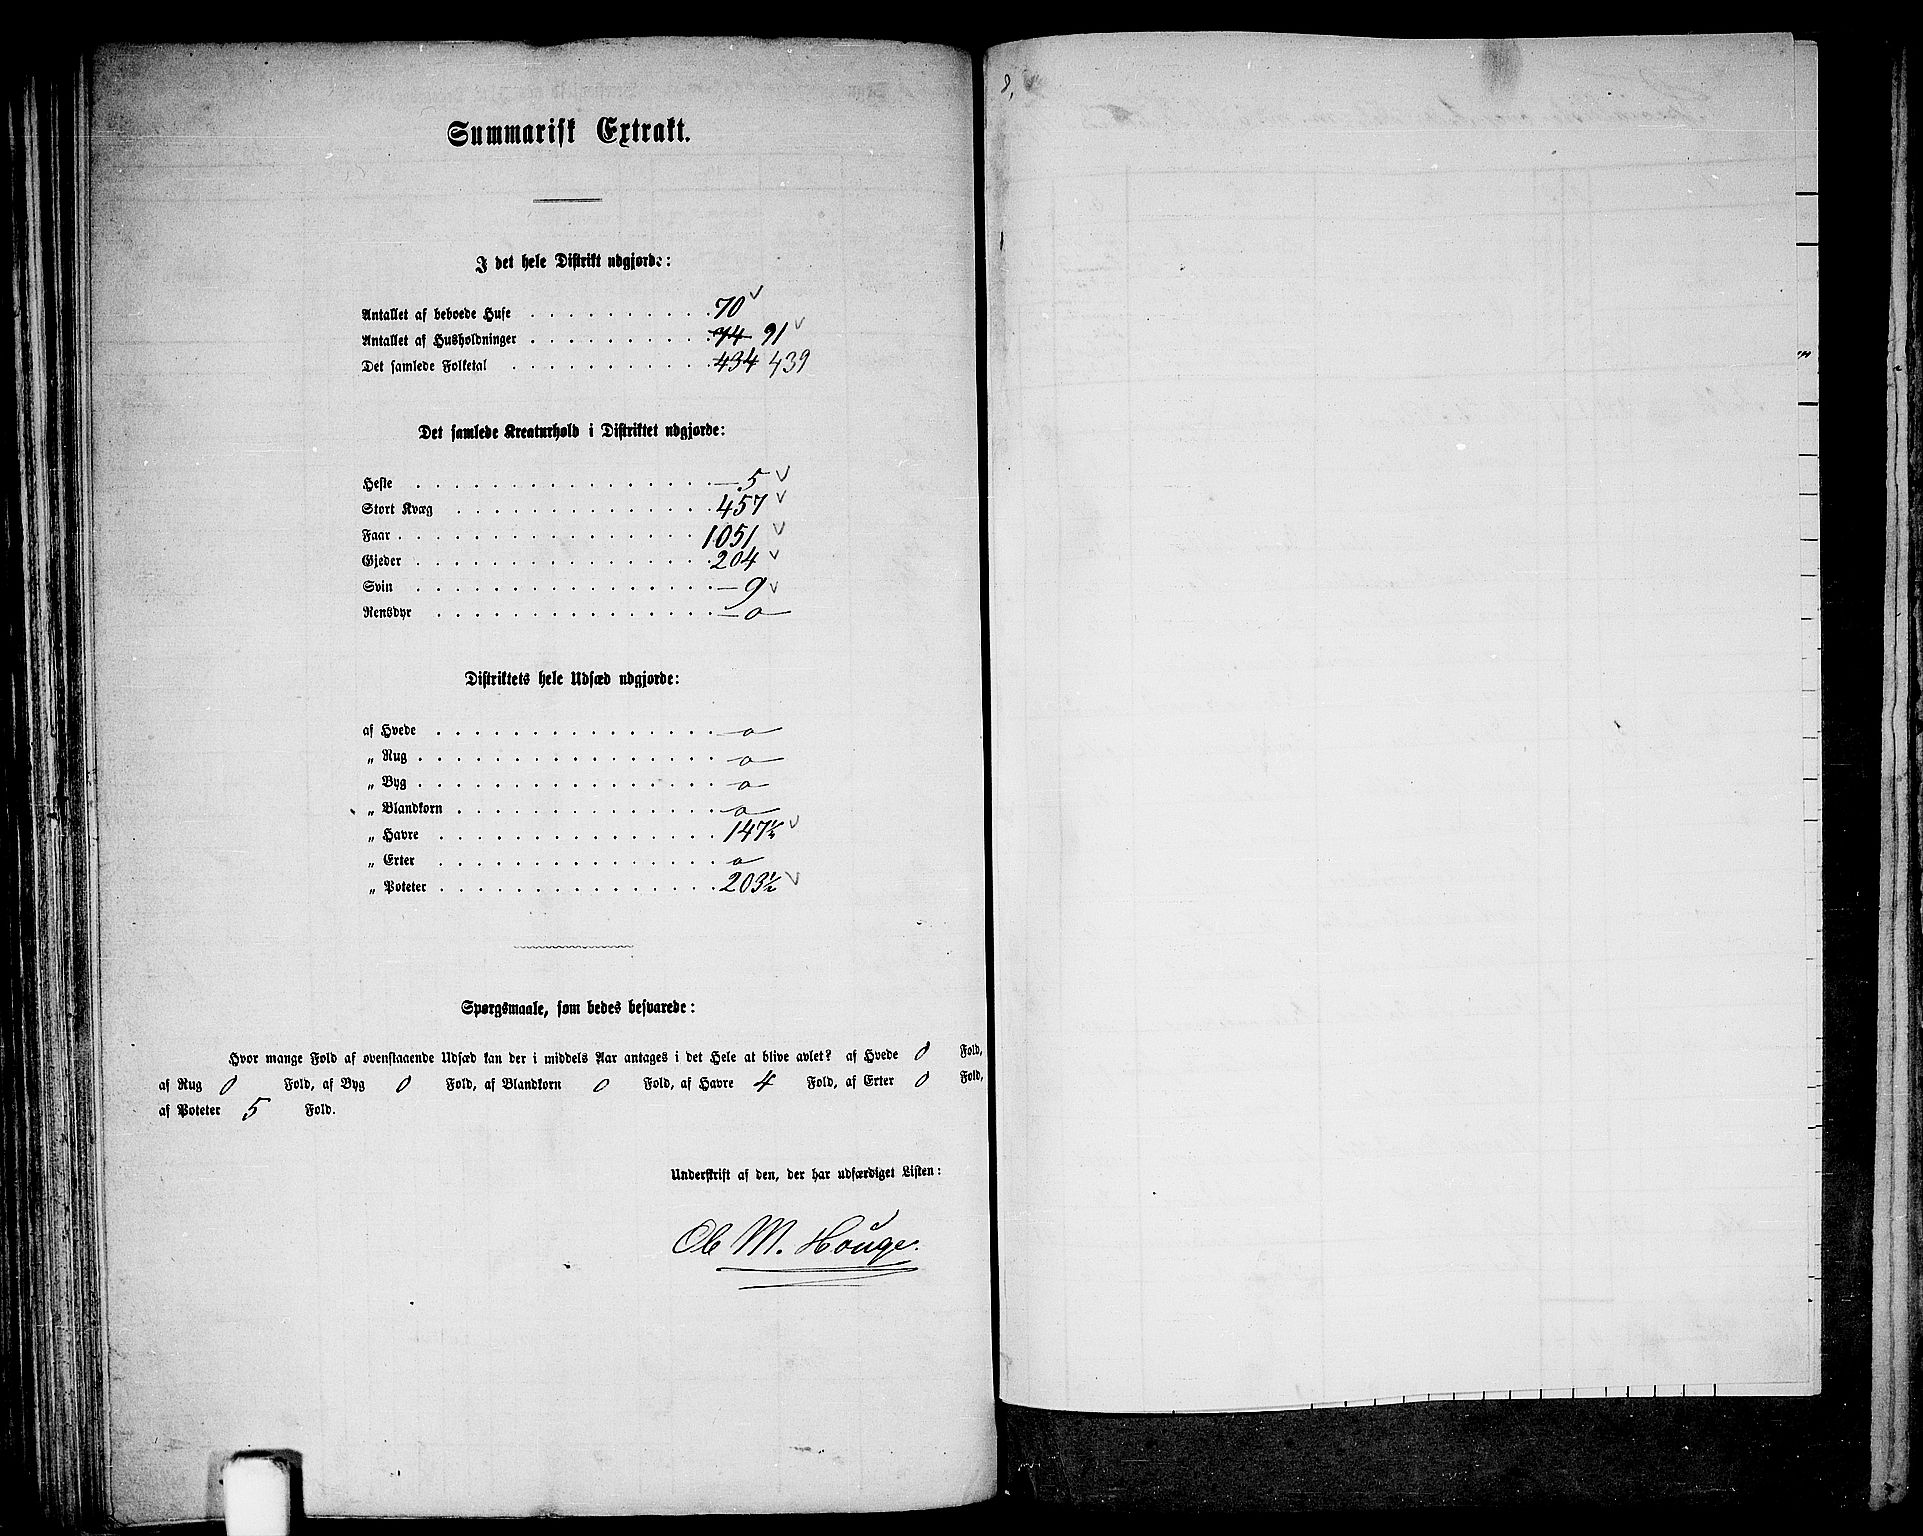 Summarisk Extrakt.
I det hele Distrikt udgjorde:
Antallet af beboede Huse . . . . . . . . . . 70
Antallet af Husholdninger . . . . . . . . . . 74 91
Det samlede Folketal . . . . . . . . . . . 434 439
Det samlede Kreaturhold i Distriktet udgjorde:
Heste . . . . . . . . . . . . . . . . — 5
Stort Kvæg . . . . . . . . . . . . . . 457
Faar . . . . . . . . . . . . . . . . . 1051
Gjeder . . . . . . . . . . . . . . . . 204
Svin . . . . . . . . . . . . . . . . — 9
Rensdyr . . . . . . . . . . . . . . . — 0 —
Distriktets hele Udsæd udgjorde:
af Hvede . . . . . . . . . . . . . . . — 0 —
„ Rug . . . . . . . . . . . . . . . . — 0 —
„ Byg . . . . . . . . . . . . . . . . — 0 —
„ Blandkorn . . . . . . . . . . . . . . — 0 —
„ Havre . . . . . . . . . . . . . . . 147½
„ Erter . . . . . . . . . . . . . . . — 0 —
„ Poteter . . . . . . . . . . . . . . . 203½
Spørgsmaale, som bedes besvarede:
Hvor mange Fold af ovenstaaende Udsæd kan der i middels Aar antages i det Hele at blive avlet? af Hvede 0 Fold,
af Rug 0 Fold, af Byg 0 Fold, af Blandkorn 0 Fold, af Havre 4 Fold, af Erter 0 Fold,
af Poteter 5 Fold.
Underskrift af den, der har udfærdiget Listen:
Ole M. Houge.
8,